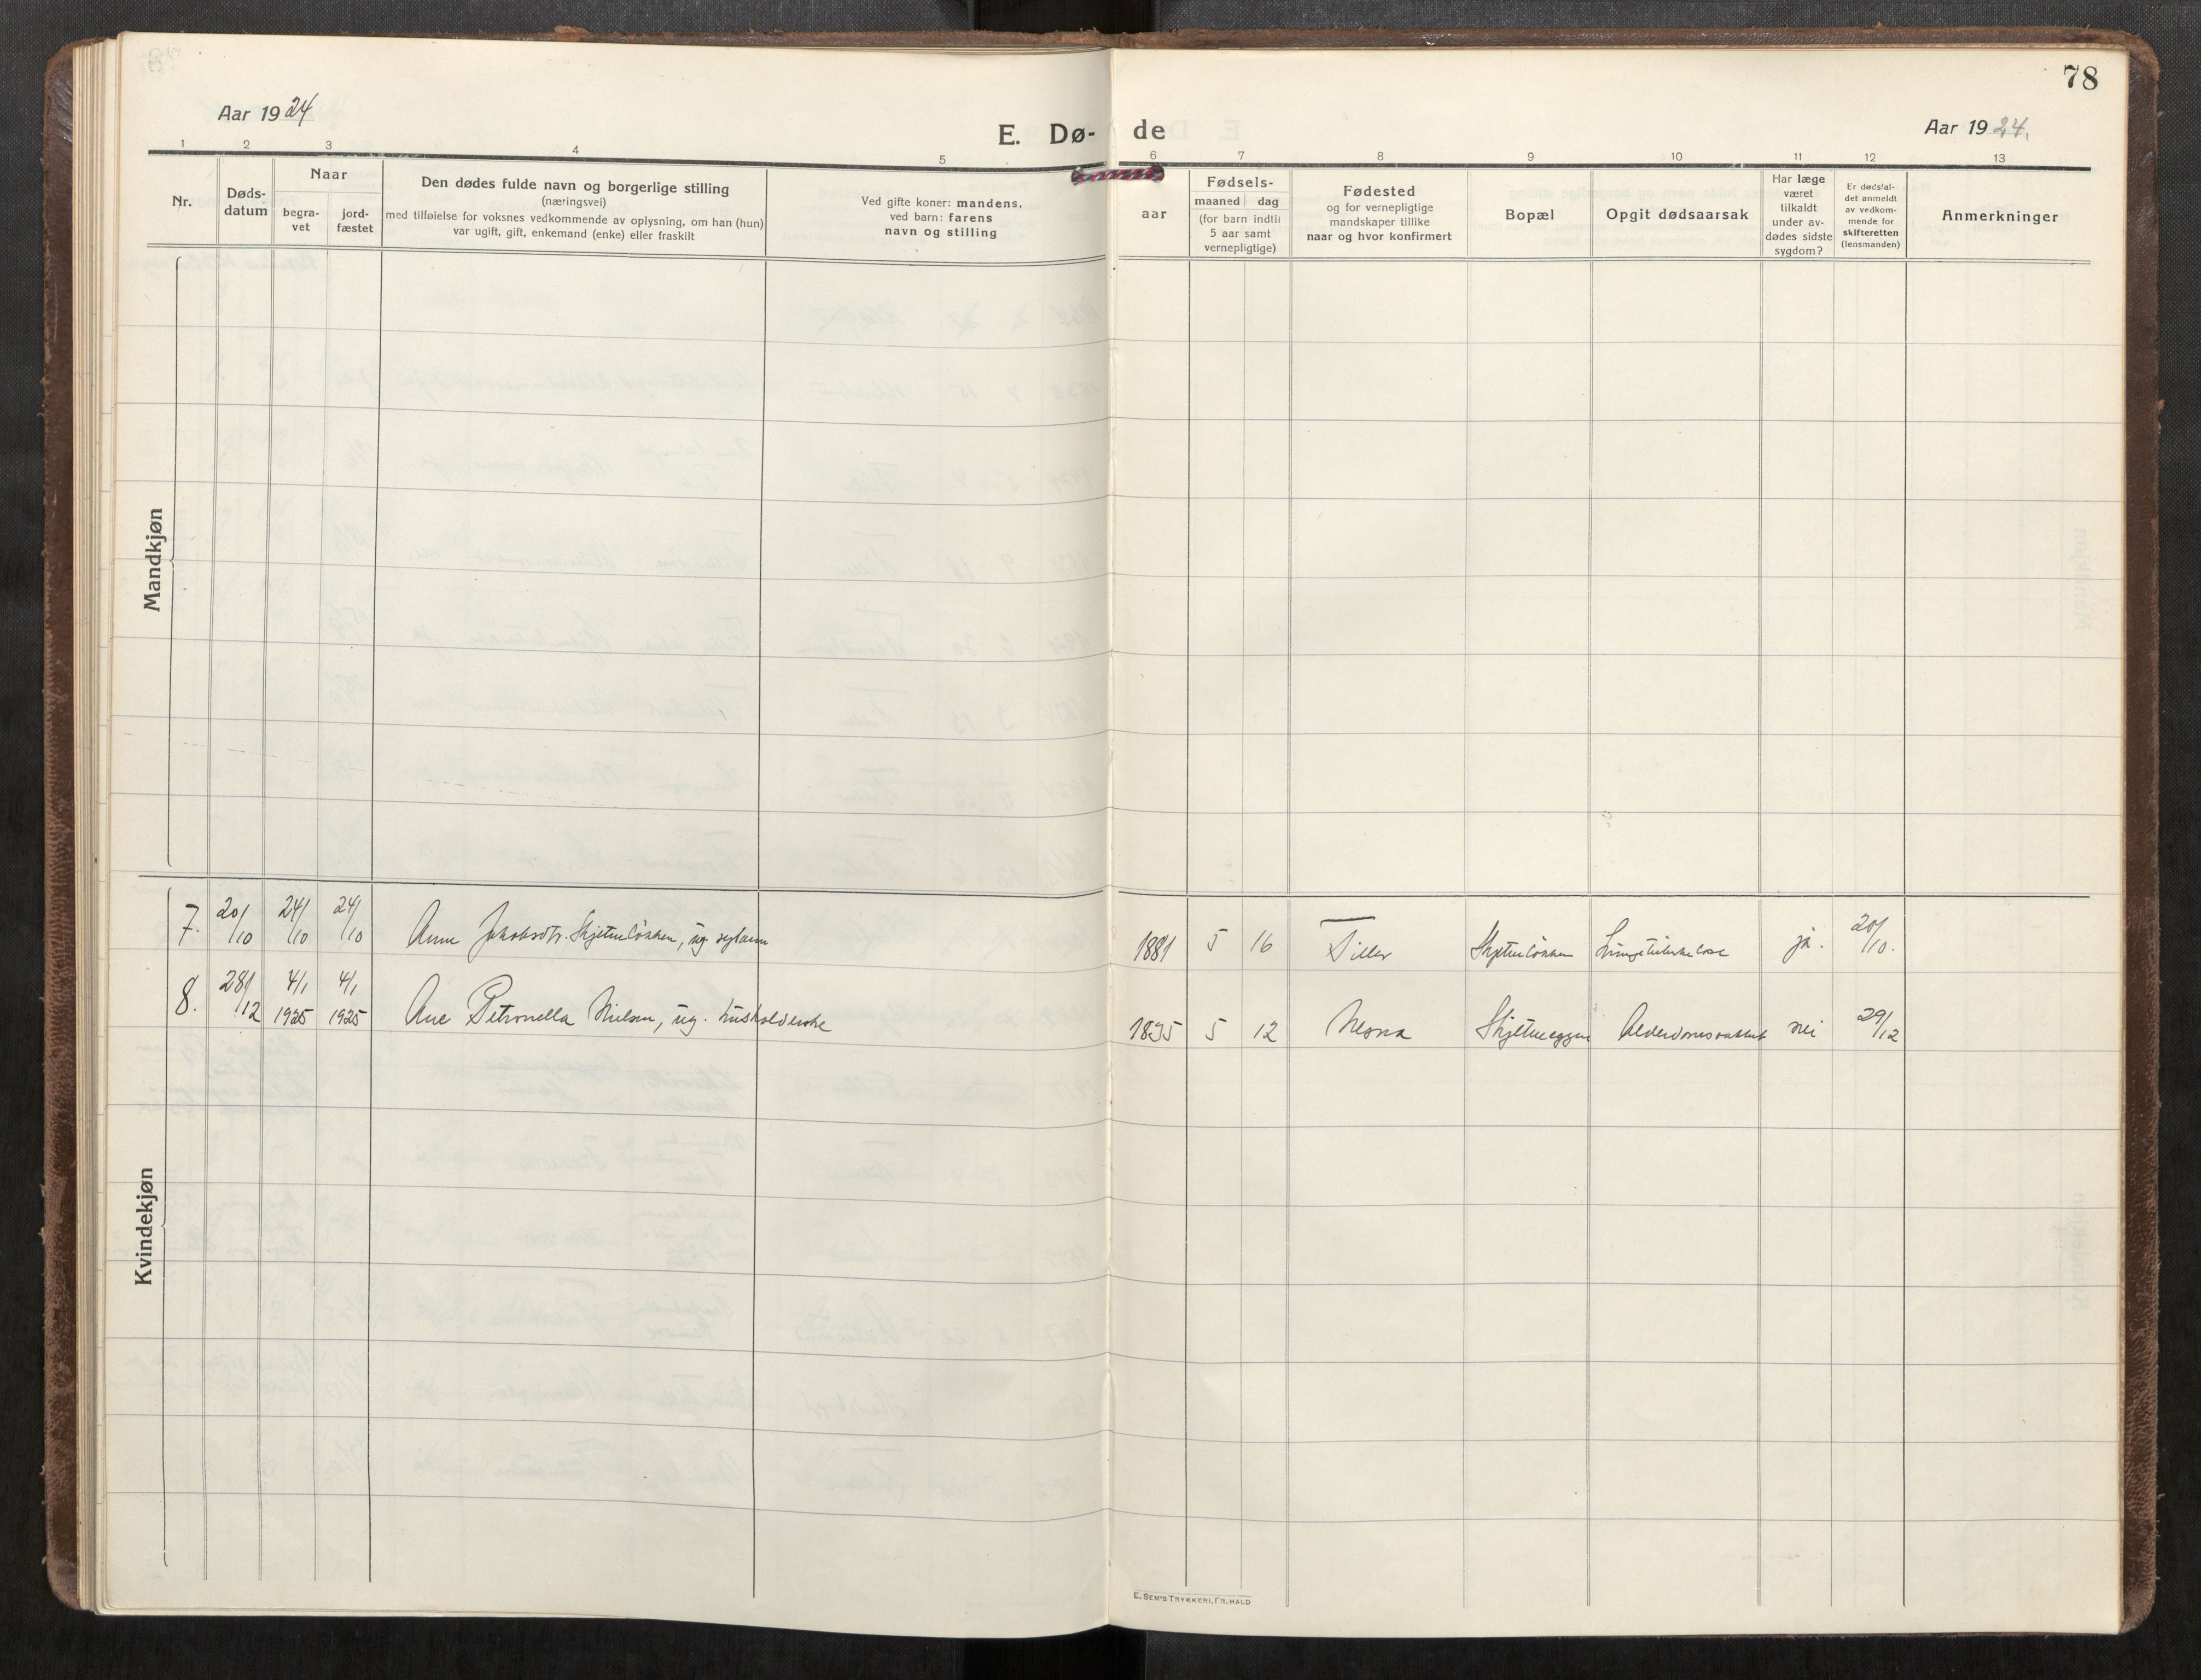 78
Aar 1924
E. Dø-
de
Aar 1924.
1 2 3 4 5 6 7 8 9 10 11 12 13
Nr.
Døds-
datum
Naar
begra-
vet
jord-
fæstet
Den dødes fulde navn og borgerlige stilling
(næringsvei)
med tilføielse for voksnes vedkommende av oplysning, om han (hun)
var ugift, gift, enkemand (enke) eller fraskilt
Ved gifte koner: mandens,
ved barn: farens
navn og stilling
aar
Fødsels-
maaned dag
(for barn indtil
5 aar samt
vernepligtige)
Fødested
og for vernepligtige
mandskaper tillike
naar og hvor konfirmert
Bopæl
Opgit dødsaarsak
Har læge
været
tilkaldt
under av-
dødes sidste
sygdom?
Er dødsfal-
det anmeldt
av vedkom-
mende for
skifteretten
(lensmanden)
Anmerkninger
Mandkjøn
7. 20/10 24/10 24/10 Anne Jakobsdtr. Skjetneløkken, ug. 1881 5 16 Tiller Skjetneløkken Lungetuberkulose ja. 20/10.
8. 28/12 4/1 1925 4/1 1925 Ane Petronella Nielsen, ug. husholderske 1835 5 12 Nesna Skjetneeggen Alderdomssvakhet nei 29/12
Kvindekjøn
E. SEM'S TRYKKERI, FR.HALD